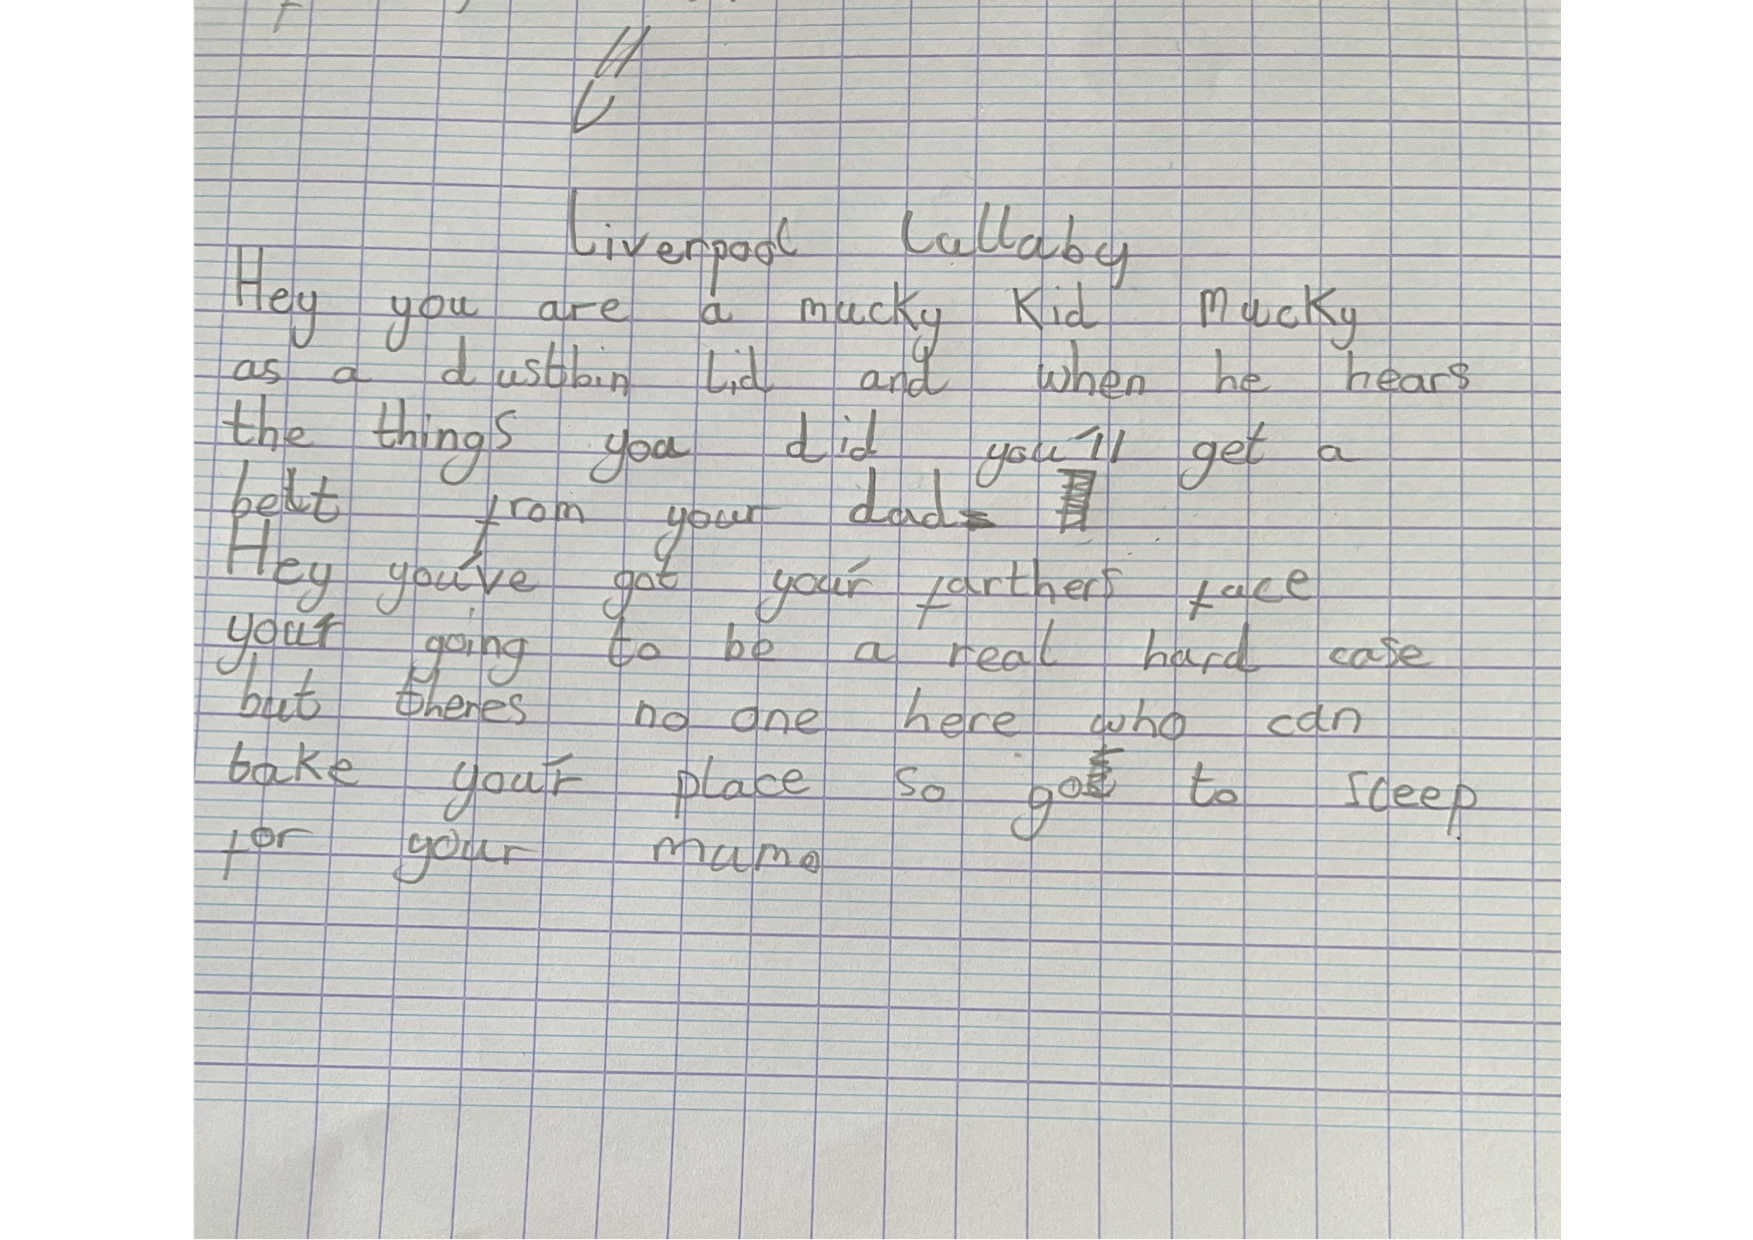 Liverpool Lullaby
Hey you are a mucky Kid mucky
as a dustbin Lid and when he hears
the things you did you'll get a
belt from your dad
Hey you've got your farthers face
your going to be a real hard case
but theres no one here who can
take your place so go to sleep
for your mum.